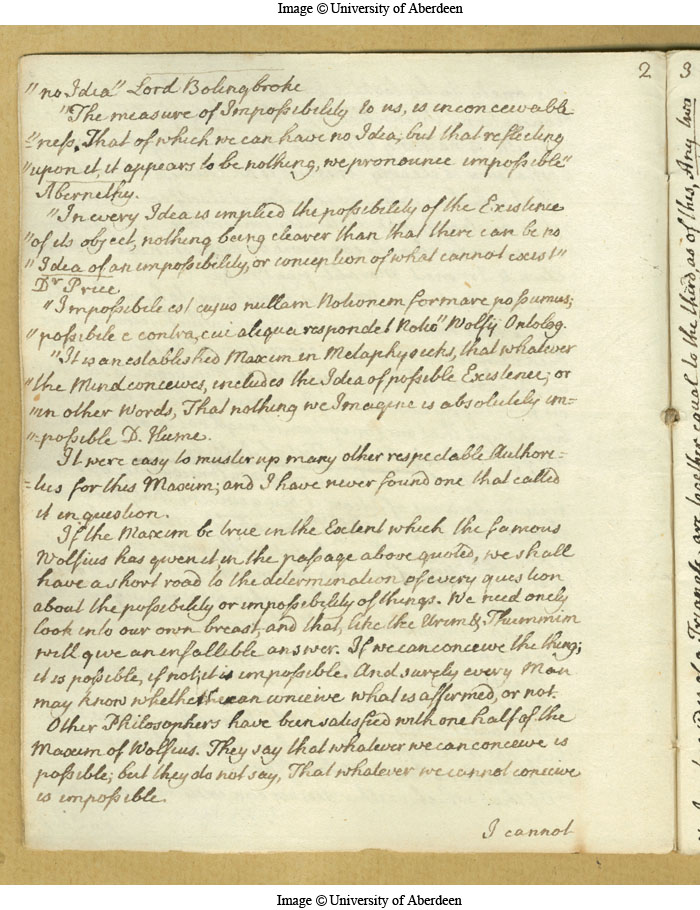 Image © University of Aberdeen
2
3
"no Idea" Lord Bolingbroke
"The measure of Impossibility to us, is inconceivable
"ness. That of which we can have no Idea, but that reflecting
"upon it, it appears to be nothing, we pronounce impossible"
Abernethy.
"In every Idea is implied the possibility of the Existence
"of its object, nothing being clearer than that there can be no
"Idea of an impossibility, or conception of what cannot exist"
Dr Price
"Impossibile est cujus nullam Notionem formare possumus;
"possibile e contra, cui aliqua respondet Notio" Wolfij Ontolog.
"It is an established Maxim in Metaphysicks, that whatever
"the Mind conceives, includes the Idea of possible Existence; or
"in other Words, That nothing we Imagine is absolutely im=
"=possible D. Hume.
It were easy to muster up many other respectable Authori=
=ties for this Maxim; and I have never found one that called
it in question.
If the Maxim be true in the Extent which the famous
Wolfius has given it in the passage above quoted, we shall
have a short road to the determination of every question
about the possibility or impossibility of things. We need only
look into our own breast, and that, like the Urim & Thummim
will give an infallible answer. If we can conceive the thing;
it is possible, if not, it is impossible. And surely every Man
may know whether he can conceive what is affirmed, or not.
Other Philosophers have been satisfied with one half of the
Maxim of Wolfius. They say that whatever we can conceive is
possible; but they do not say, That whatever we cannot conceive
is impossible.
I cannot
of a Triangle are together equal to the third as of this, Any two
Image © University of Aberdeen